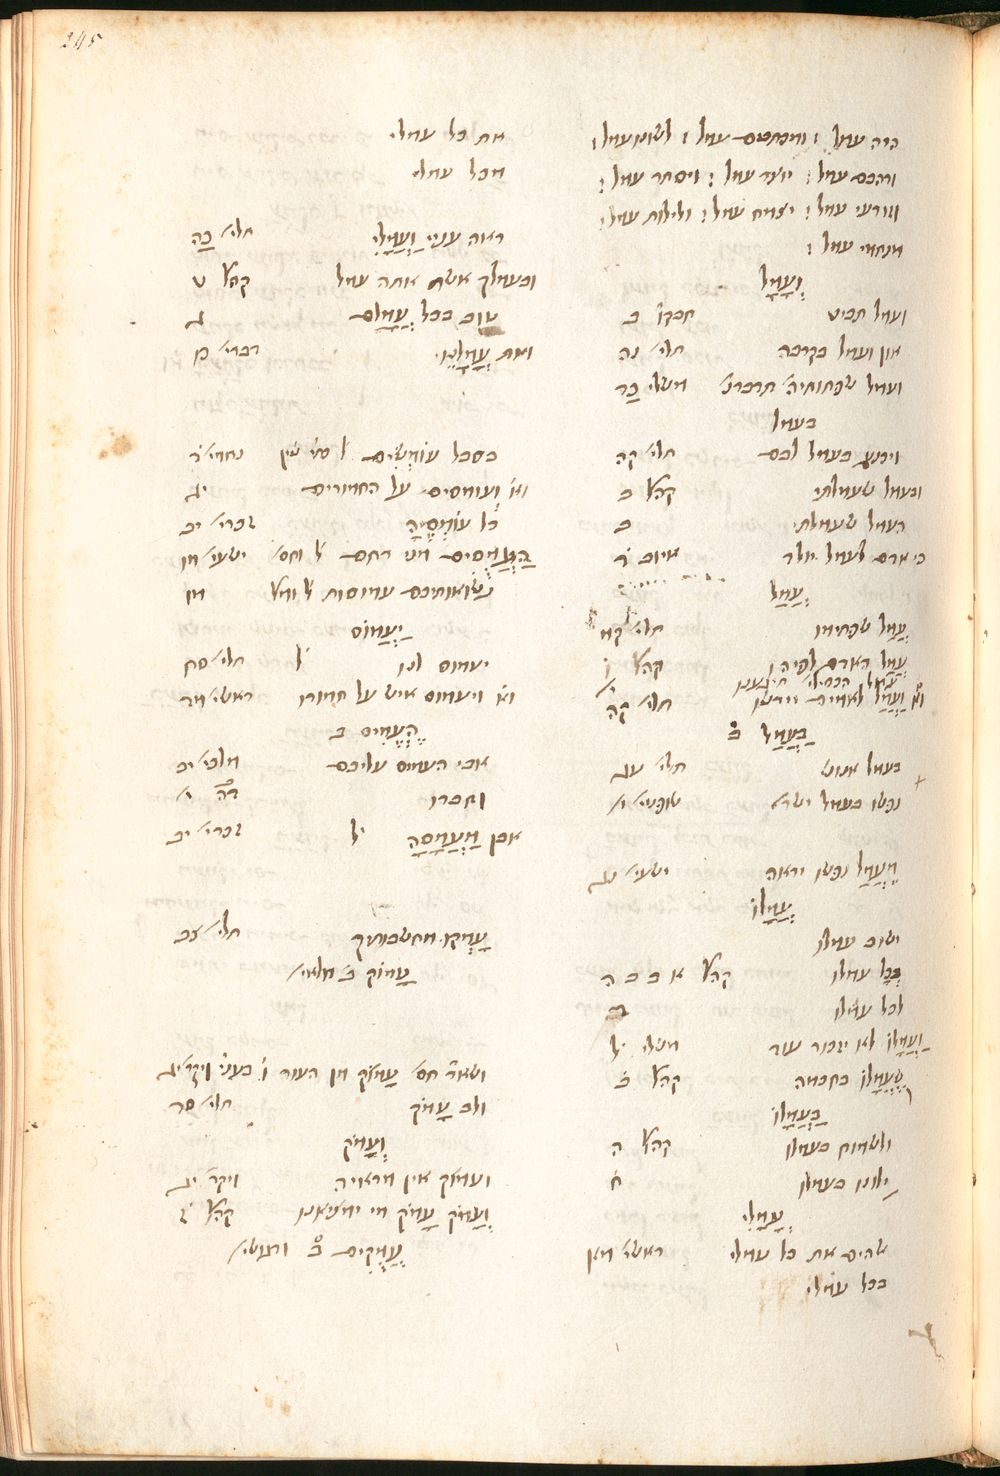 245
היה עמל ׃ ומכתבים עמל ׃ לשון עמל ׃
והבט עמל ׃ יוצר עמל ׃ ויסתר עמל ׃
וזורעי עמל ׃ יצמח עמל ׃ ולילות עמל ׃
מנחמי עמל ׃
וְעָמָל
ועמל תביט חבקו׳ ב
און ועמל בקרבה תלי׳ נה
ועמל שפתותיה׳ תדברנ׳ משלי כד
בעמל
ויכנע בעמל לבם תלי׳ קה
ובעמל שעמלתי קהל׳ ב
העמל שעמלתי ב
כי אדם לעמל יולד איוב
עֲמַל
עֲמַל שפתימו תלי׳ קמ
עֲמַל האדם לפיהו קהל׳ ו
עמל הכסילי׳ תיגענו
וא׳ וַעֲמַל לאמים יירשו תלי׳ קה
בַּעֲמַל ב֗
בעמל אנוש תלי׳ עג
נפשו בעמל ישר׳ שופטי׳ י׳
מֵעֲמַל נפשו יראה ישעי׳ נג
עֲמָלוֹ
ישוב עמלו
בְּכָל עמלו קהל׳ א ב ב ה
לכל עמלו
וַעֲמָלוֹ לא יזכור עוד משלי ל׳
שֶׁעֲמָלוֹ בחכמה קהל׳ ב֗
בַּעֲמָלוֹ
ולשמוח בעמלו קהל׳ ה
ילונו בעמלו ח֗
עֲמָלִי
אלהים את כל עמלי ראשי׳ מא
בכל עמלי
את כל עמלי
מכל עמלי
ראה עניי וַעֲמָלִי תלי׳ כה
ובעמלך אשר אתה עמל קהל׳ ט
טוב בכל עֲמָלָם ד
ואת עֲמָלֵנוּ׳ דברי׳ כו
בסבל עוֹמְשִׂים ל׳ נחמי׳ ד
וא׳ ועומסים על החמורים יג
כל עוֹמְסֶיהָ זכרי׳ יב
הַעֲמֻסִים מני רחם ל׳ וחס׳ ישעי׳ מו
נְשׂוּאותיכם עמוסות ל׳ ומל׳ מו
יַעֲמוֹס
יעמוס לנו ל׳ תלי׳ סח
וא׳ ויעמוס איש על חמורו ראשי׳ מד
הֶעֱמִיס ב
אבי העמיס עליכם מלכי׳ יב
וחברו דה׳ י׳
אבן מַעֲמָסָה ל׳ זכרי׳ יב
עָמְקוּ מחשבותיך תלי׳ צב
עָמוֹק ב֗ מלאי׳
ושאר׳ חס׳ עָמֹק מן העור ו׳ בעני׳ ויקר׳ יג
ולב עָמֹק תלי׳ סד
וְעָמֹק
ועמוק אין מראיה ויקר׳ יג
וְעָמֹק עָמֹק מי ימצאנו קהל׳ ז
עֲמֻקִּים ב֗